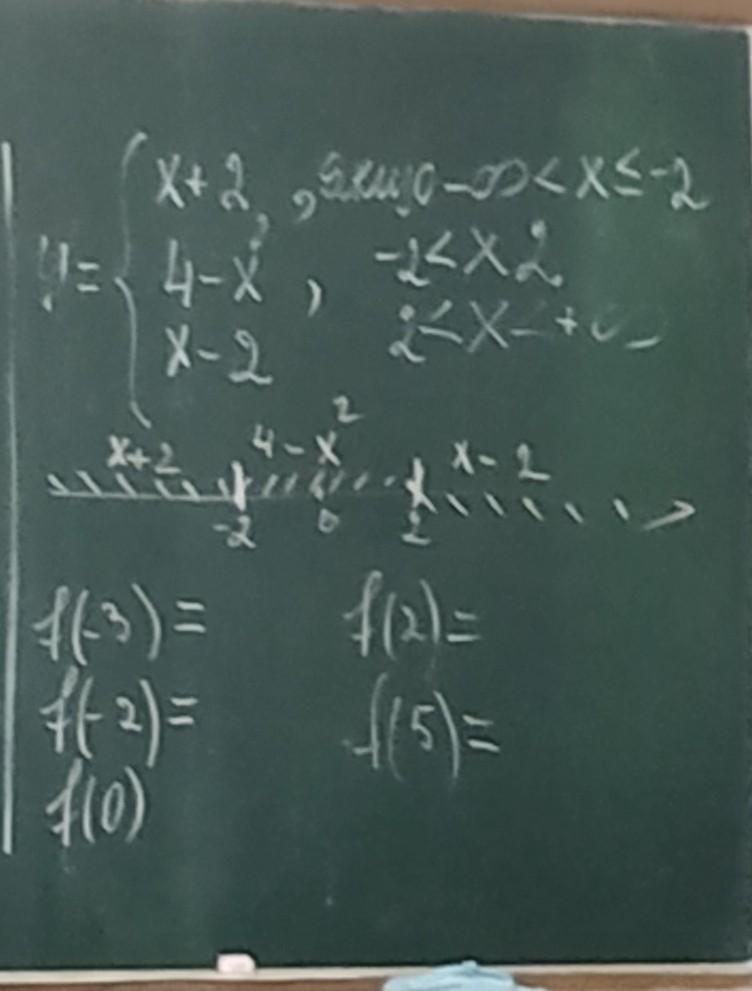 y = { x + 2, якщо -∞ < x ≤ -2
4 - x², -2 < x 2
x - 2 2 < x < +∞
x+2 4 - x² x - 2
-2 0 2
f(-3) = f(2) =
f(-2) = f(5) =
f(0)